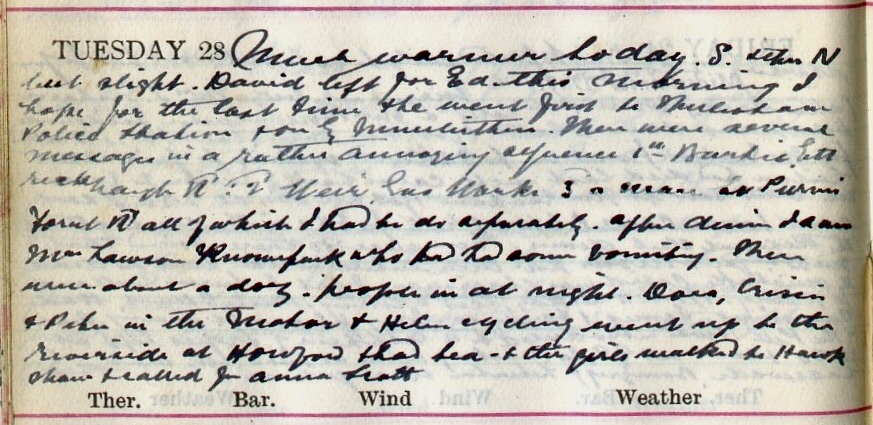 TUESDAY 28 Much warmer today. S. then N
but slight. David left for Ed. this morning I
hope for the last time & he went first to
Police Station & on to. There were several
messages in a rather annoying sequence 1st
Weir Gas Works 3 a man at Purvis
all of which I had to do separately. After dinner I saw
Mrs Lawson Knowepark who had had some vomiting. There
were about a doz. people in at night. Dora, Crissie
& Peter in the Motor & Helen cycling went up to the
riverside at Howford & had tea - & the girls walked to Hawk
shaw & called for Anna Scott
Ther. Bar. Wind Weather